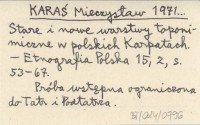 KARAŚ Mieczysław 1971...
Stare i nowe warstwy toponi-
miczne w polskich Karpatach.
– Etnografia Polska 15, 2, s.
53-67.
Próba wstępna ograniczona
do Tatr i Podtatrza.